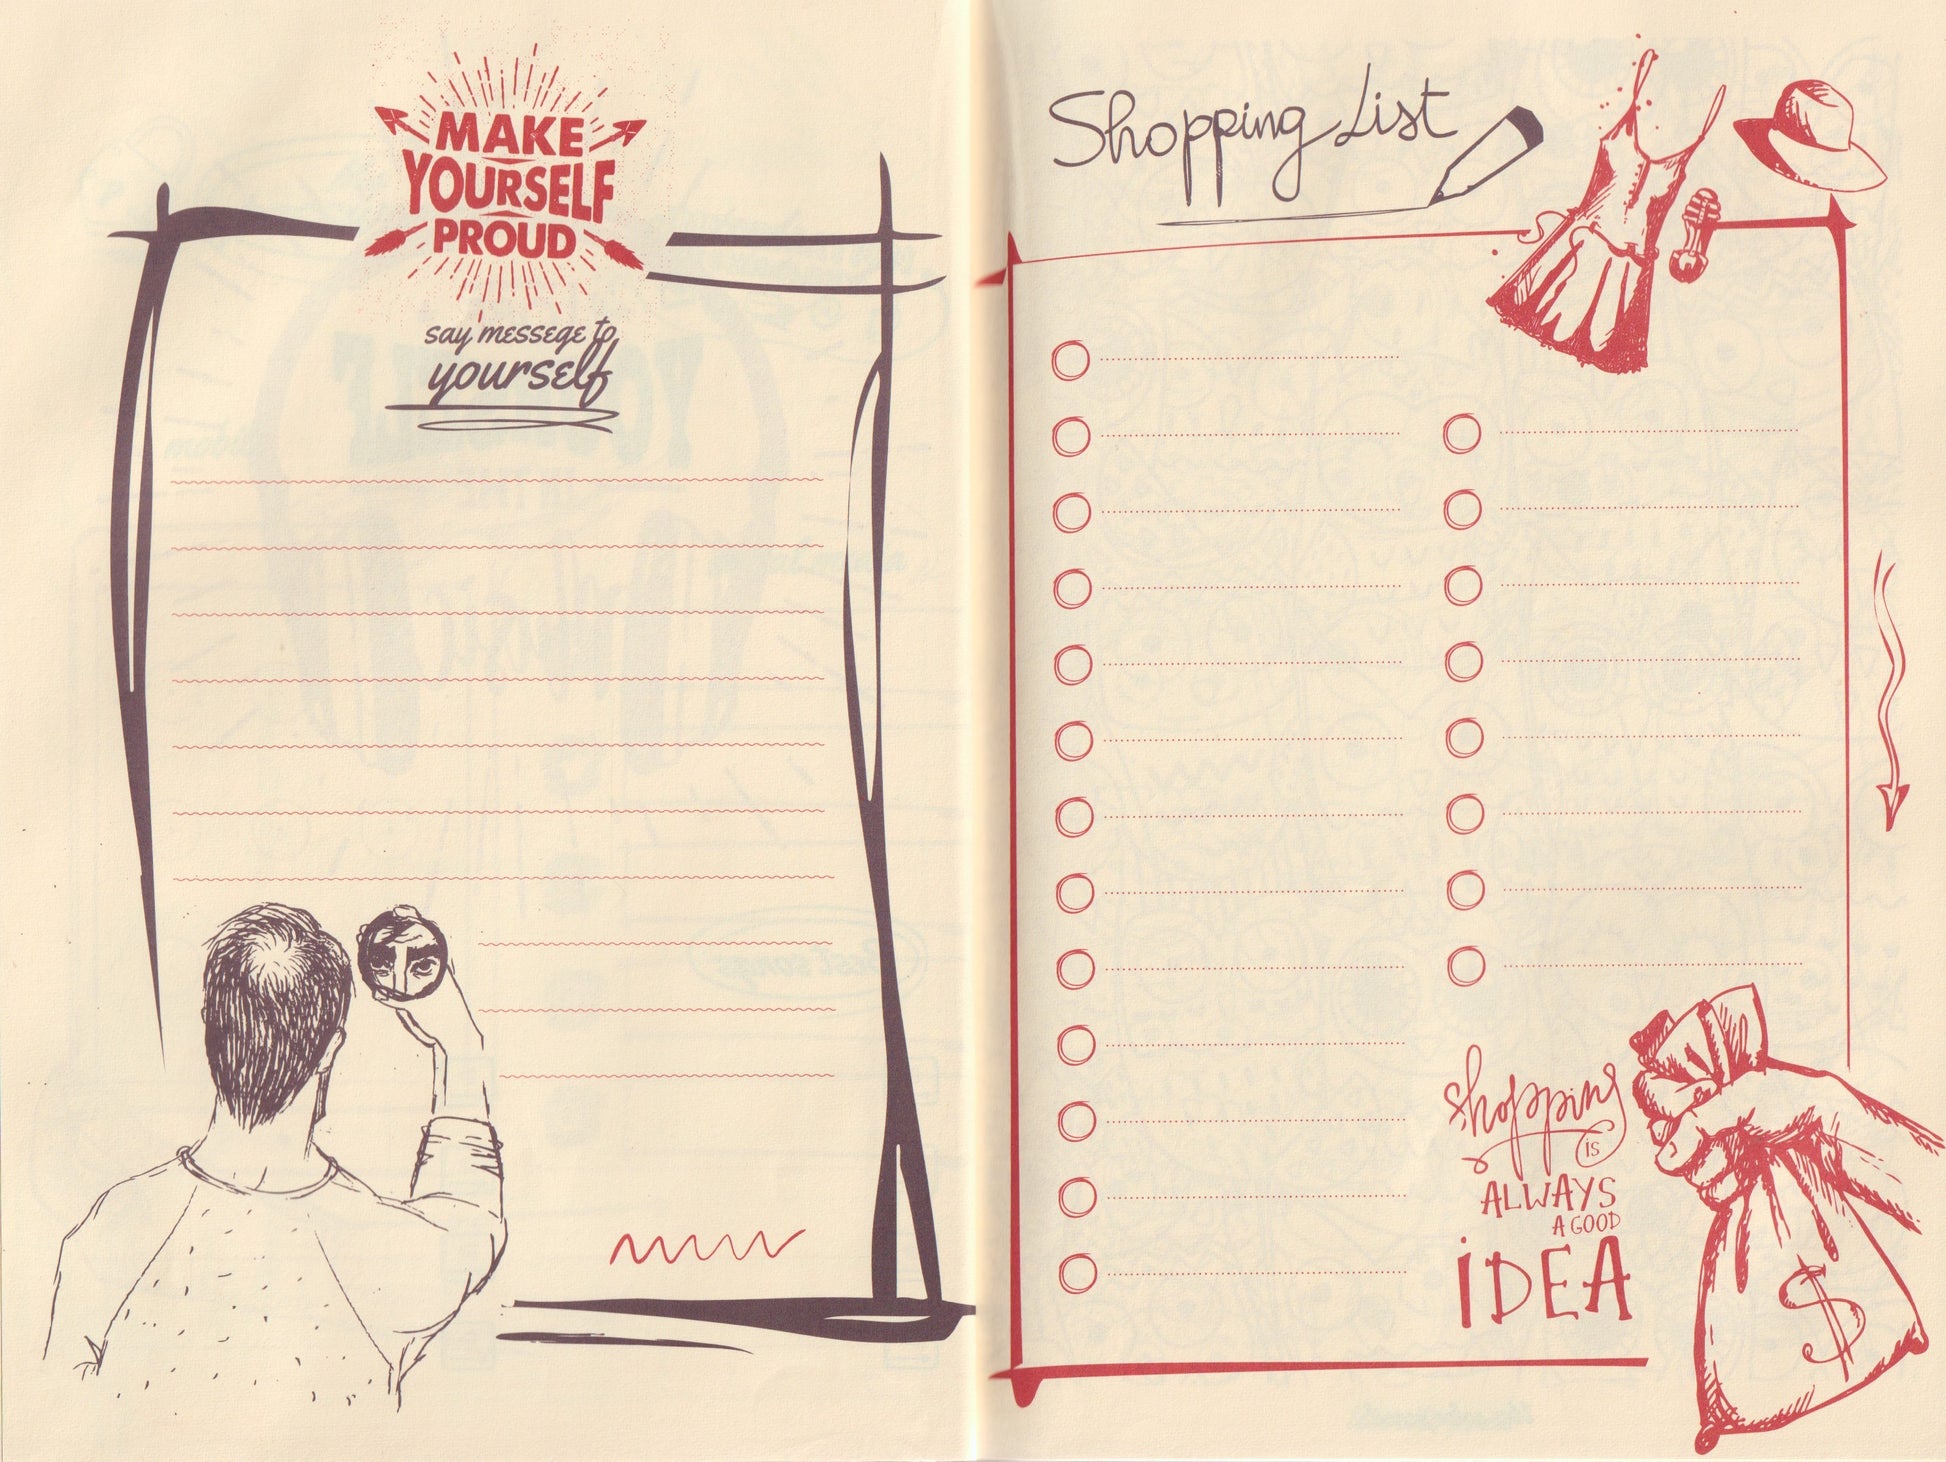 MAKE
YOURSELF
PROUD
say messege to
yourself
Shopping List
shopping
is
ALWAYS
A GOOD
iDEA
$